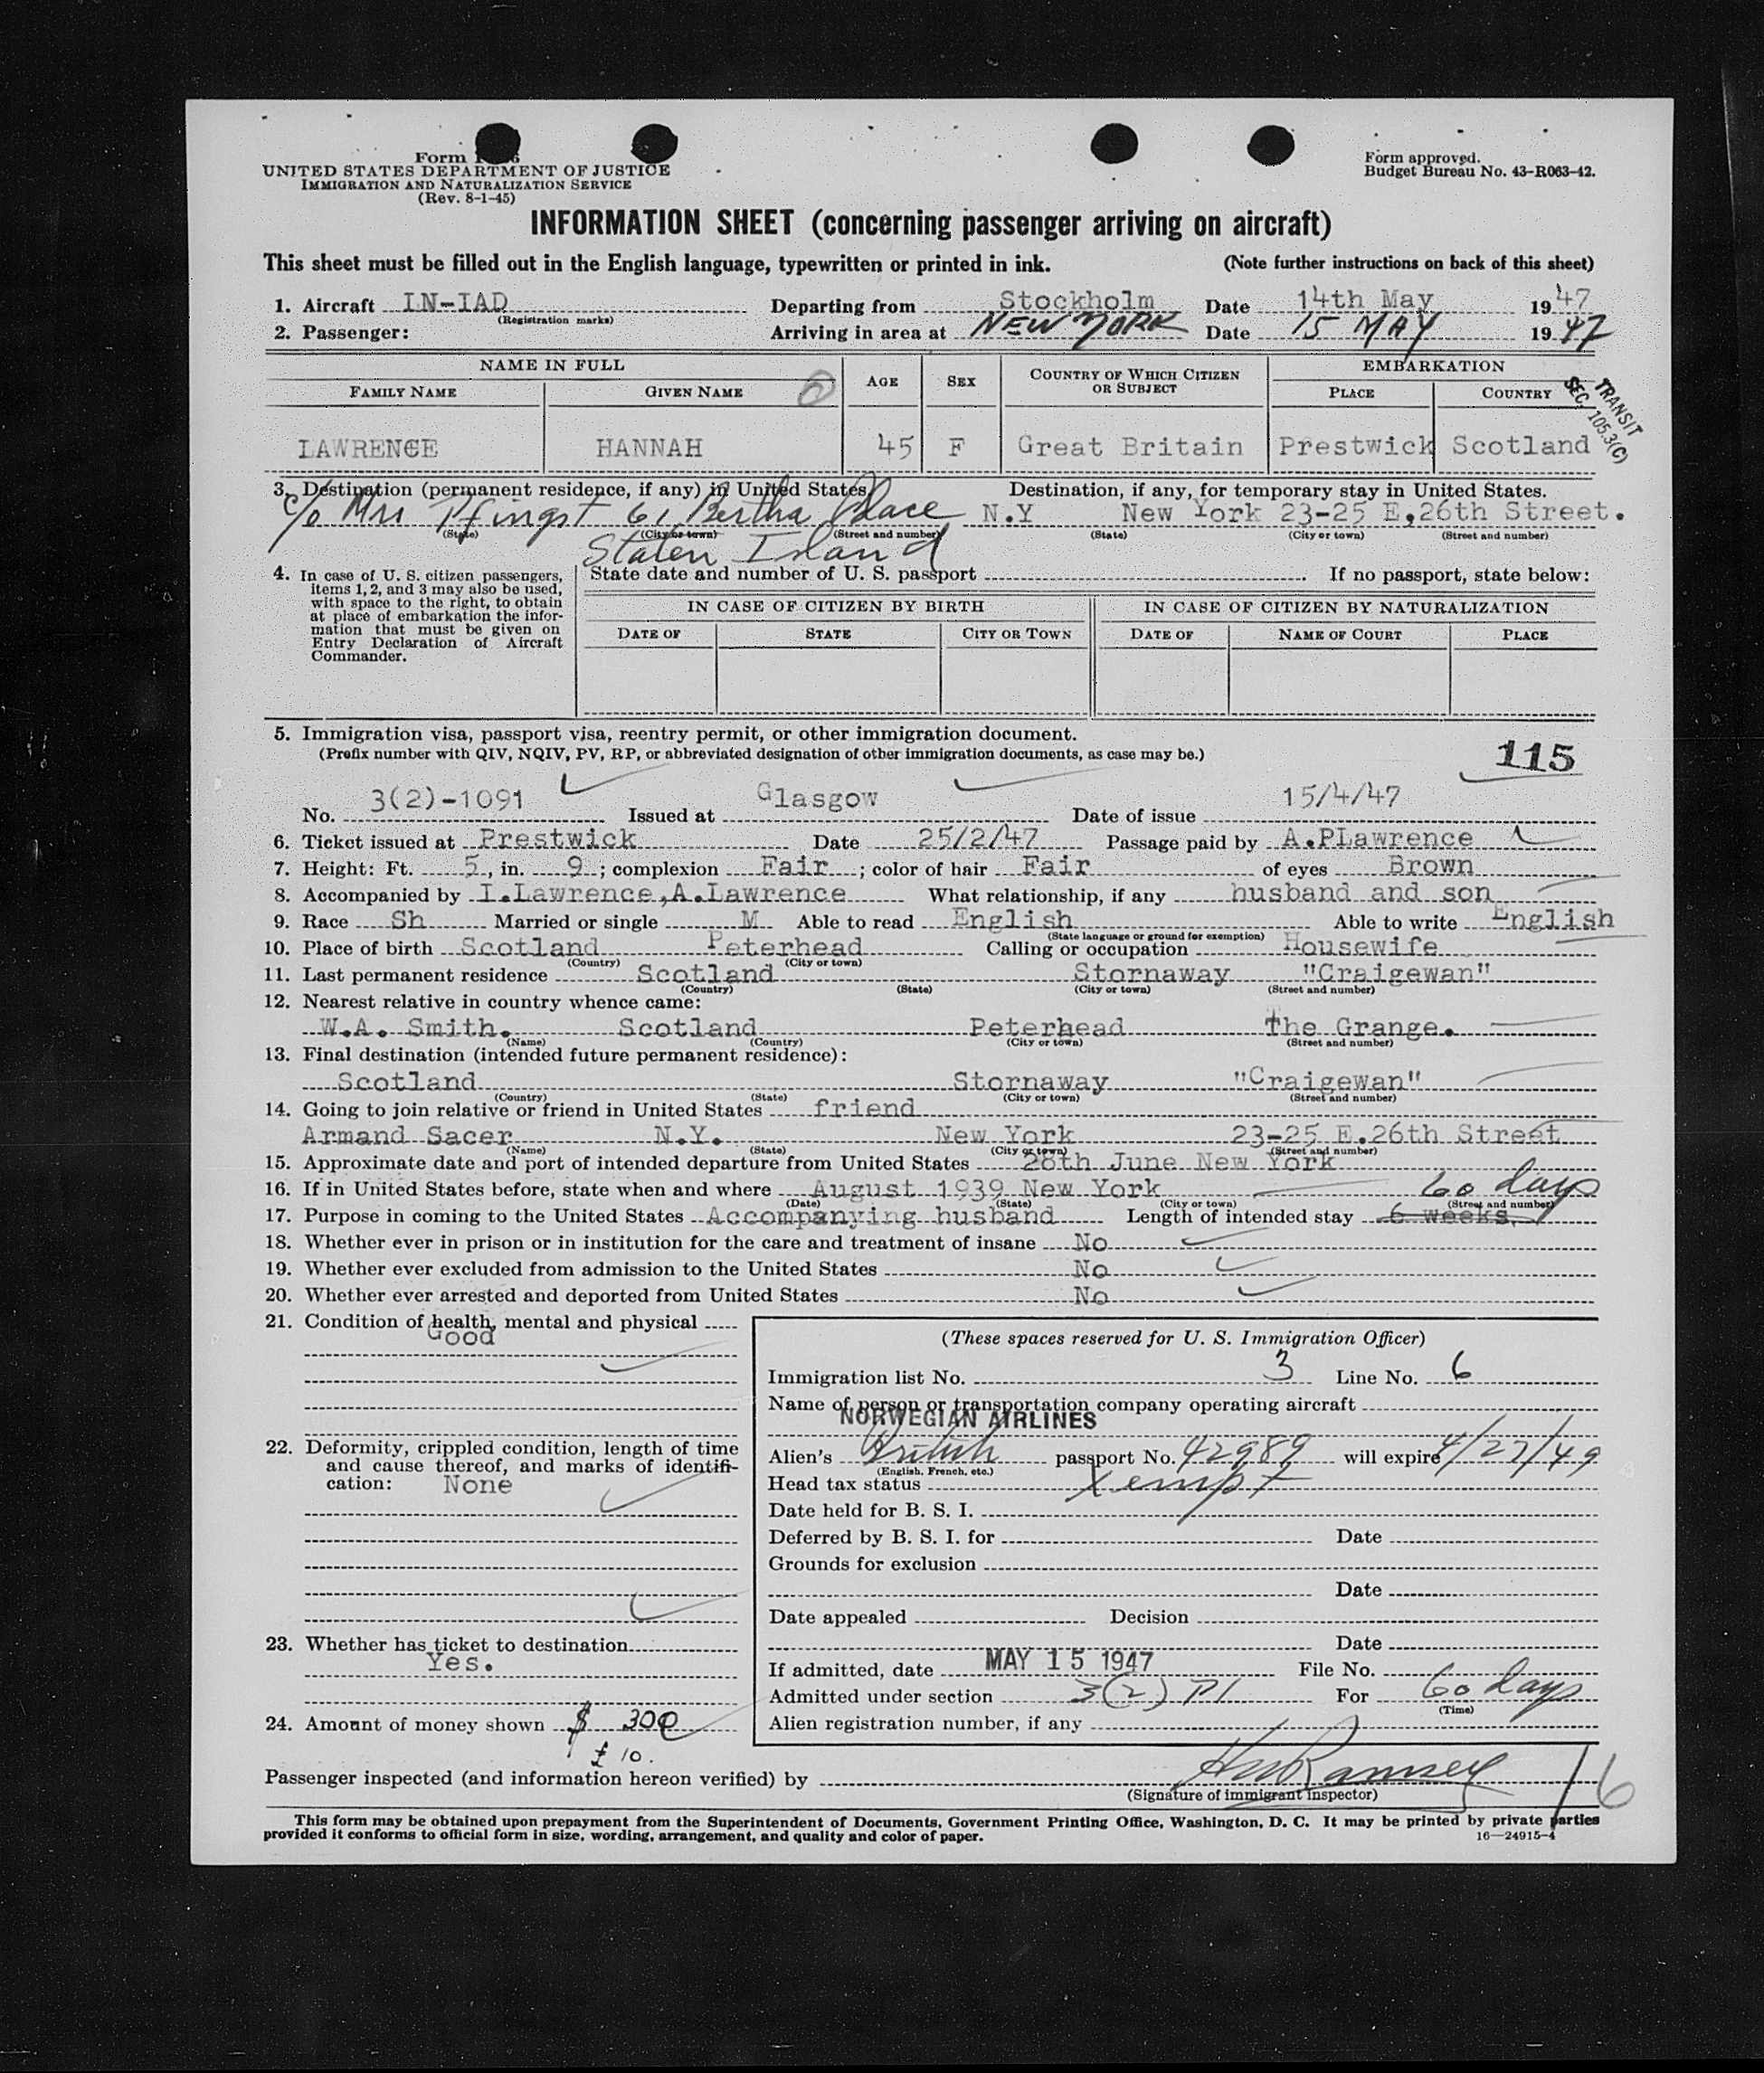 Form
UNITED STATES DEPARTMENT OF JUSTICE
IMMIGRATION AND NATURALIZATION SERVICE
(Rev. 8-1-45)
Form approved.
Budget Bureau No. 43-R063-42.
INFORMATION SHEET (concerning passenger arriving on aircraft)
This sheet must be filled out in the English language, typewritten or printed in ink. (Note further instructions on back of this sheet)
1. Aircraft LN-IAD Departing from Stockholm Date 14th May 1947
(Registration marks)
2. Passenger: Arriving in area at NEW YORK Date 15 MAY 1947
NAME IN FULL AGE SEX COUNTRY OF WHICH CITIZEN OR SUBJECT EMBARKATION
FAMILY NAME GIVEN NAME PLACE COUNTRY
TRANSIT
SEC. 105.3(C)
LAWRENCE HANNAH 45 F Great Britain Prestwick Scotland
3. Destination (permanent residence, if any) in United States Destination, if any, for temporary stay in United States.
c/o Mrs Pfingst 61, Bertha Place N.Y New York 23-25 E,26th Street.
(State) (City or town) (Street and number) (State) (City or town) (Street and number)
Staten Island
4. In case of U. S. citizen passengers, items 1, 2, and 3 may also be used, with space to the right, to obtain at place of embarkation the information that must be given on Entry Declaration of Aircraft Commander.
State date and number of U. S. passport . If no passport, state below:
IN CASE OF CITIZEN BY BIRTH IN CASE OF CITIZEN BY NATURALIZATION
DATE OF STATE CITY OR TOWN DATE OF NAME OF COURT PLACE
5. Immigration visa, passport visa, reentry permit, or other immigration document.
(Prefix number with QIV, NQIV, PV, RP, or abbreviated designation of other immigration documents, as case may be.)
115
No. 3(2)-1091 Issued at Glasgow Date of issue 15/4/47
6. Ticket issued at Prestwick Date 25/2/47 Passage paid by A.PLawrence
7. Height: Ft. 5, in. 9; complexion Fair; color of hair Fair of eyes Brown
8. Accompanied by I.Lawrence,A.Lawrence What relationship, if any husband and son
9. Race Sh Married or single M Able to read English Able to write English
(State language or ground for exemption)
10. Place of birth Scotland Peterhead Calling or occupation Housewife
(Country) (City or town)
11. Last permanent residence Scotland Stornaway "Craigewan"
(Country) (State) (City or town) (Street and number)
12. Nearest relative in country whence came:
W.A. Smith. Scotland Peterhead The Grange.
(Name) (Country) (City or town) (Street and number)
13. Final destination (intended future permanent residence):
Scotland Stornaway "Craigewan"
(Country) (State) (City or town) (Street and number)
14. Going to join relative or friend in United States friend
Armand Sacer N.Y. New York 23-25 E.26th Street
(Name) (State) (City or town) (Street and number)
15. Approximate date and port of intended departure from United States 28th June New York
16. If in United States before, state when and where August 1939 New York
(Date) (State) (City or town) (Street and number)
60 days
17. Purpose in coming to the United States Accompanying husband Length of intended stay 6 weeks.
18. Whether ever in prison or in institution for the care and treatment of insane No
19. Whether ever excluded from admission to the United States No
20. Whether ever arrested and deported from United States No
21. Condition of health, mental and physical
Good
22. Deformity, crippled condition, length of time and cause thereof, and marks of identification: None
23. Whether has ticket to destination
Yes.
24. Amount of money shown $ 300
£ 10.
(These spaces reserved for U. S. Immigration Officer)
Immigration list No. 3 Line No. 6
Name of person or transportation company operating aircraft
NORWEGIAN AIRLINES
Alien's British passport No. 42989 will expire 4/27/49
(English, French, etc.)
Head tax status Xempt
Date held for B. S. I.
Deferred by B. S. I. for Date
Grounds for exclusion
Date
Date appealed Decision
Date
If admitted, date MAY 15 1947 File No.
Admitted under section 3(2) P1 For 60 days
(Time)
Alien registration number, if any
Passenger inspected (and information hereon verified) by Ramsey
(Signature of immigrant inspector)
16
This form may be obtained upon prepayment from the Superintendent of Documents, Government Printing Office, Washington, D. C. It may be printed by private parties
provided it conforms to official form in size, wording, arrangement, and quality and color of paper. 16—24915-4